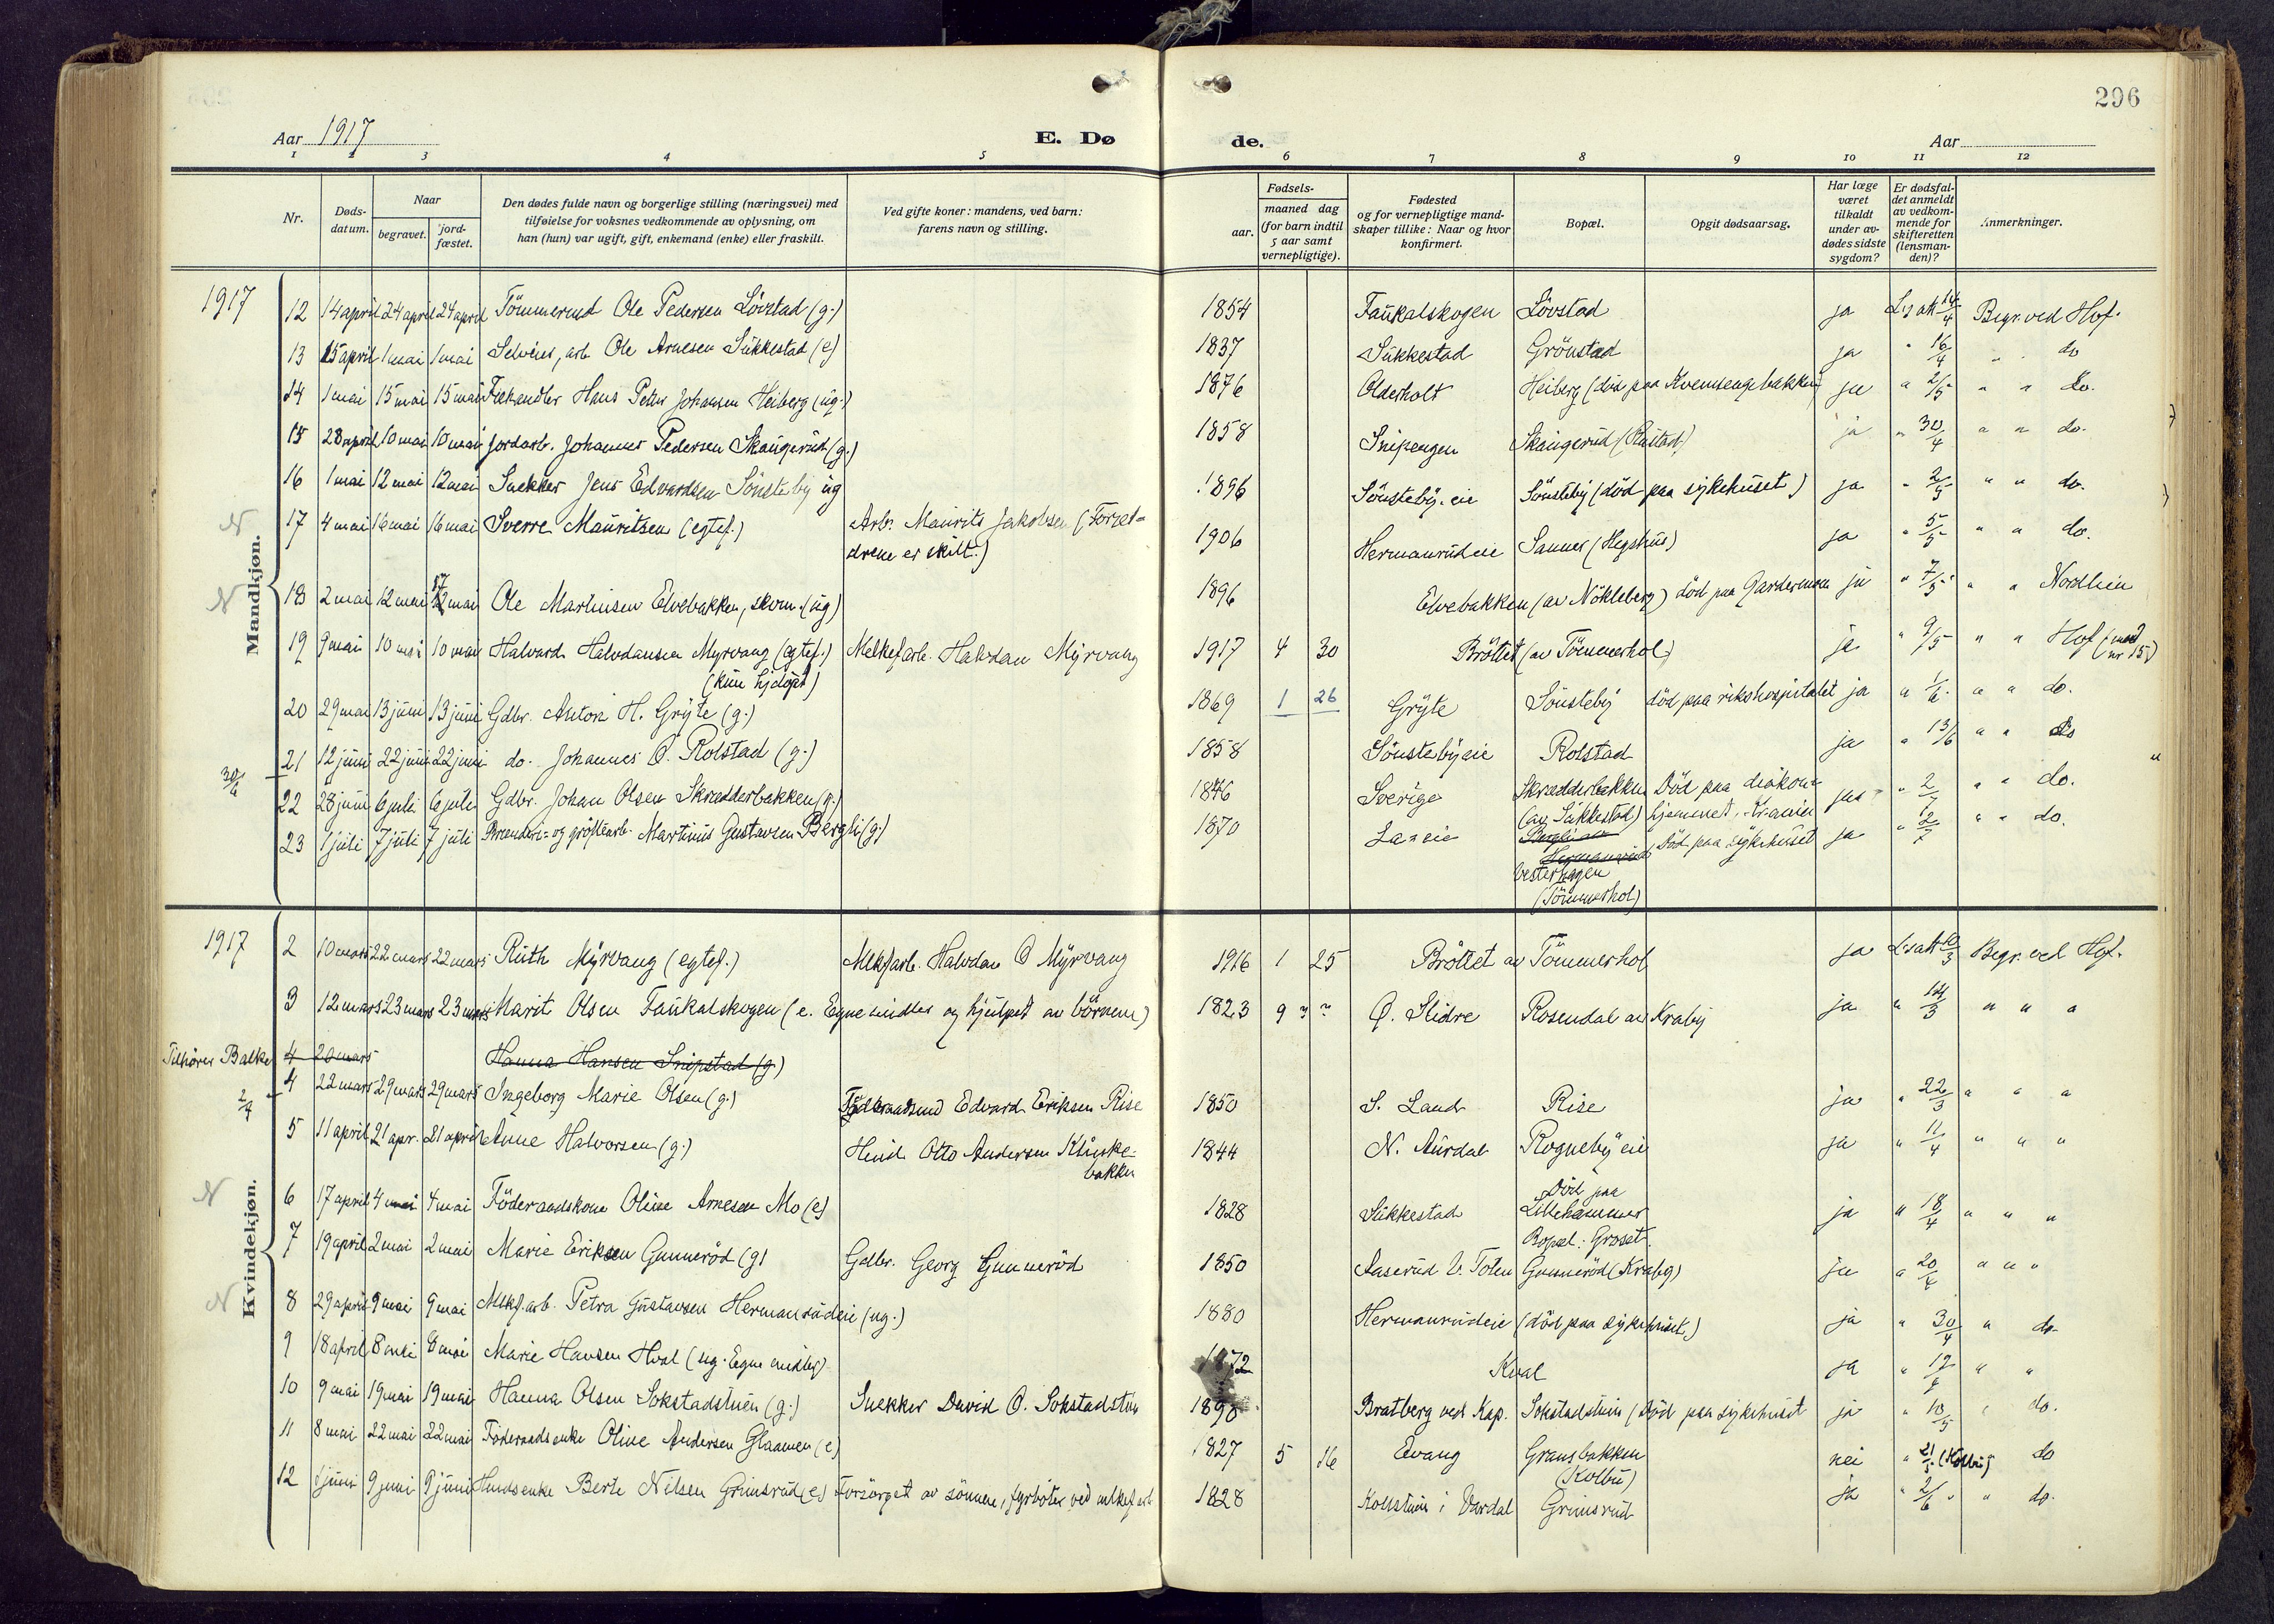 296
Aar 1917
E. Dø
de.
Aar
1 2 3 4 5 6 7 8 9 10 11 12
Nr.
Døds-
datum.
Naar
begravet.
jord-
fæstet.
Den dødes fulde navn og borgerlige stilling (næringsvei) med
tilføielse for voksnes vedkommende av oplysning, om
han (hun) var ugift, gift, enkemand (enke) eller fraskilt.
Ved gifte koner: mandens, ved barn:
farens navn og stilling.
Fødsels-
aar.
maaned dag
(for barn indtil
5 aar samt
vernepligtige).
Fødested
og for vernepligtige mand-
skaper tillike: Naar og hvor
konfirmert.
Bopæl.
Opgit dødsaarsag.
Har læge
været
tilkaldt
under av-
dødes sidste
sygdom?
Er dødsfal-
det anmeldt
av vedkom-
mende for
skifteretten
(lensman-
den)?
Anmerkninger.
Mandkjøn.
1917 12 14 april 24 april 24 april Tömmermd Ole Pedersen Lövstad (g.) 1854 Faukalskogen Lövstad ja L.s att 14/4 Begr. ved Hof.
13 15 april 1 mai 1 mai Selveier, arb. Ole Arnesen Sukkestad (e) 1837 Sukkestad Grönstad ja " 16/4 " " do
14 1 mai 15 mai 15 mai Fiskehandler Hans Petter Johansen Heiberg (ug.) 1876 Olderholt Heiberg (död paa Kvemsengebakken) ja " 2/5 " " do.
15 28 april 10 mai 10 mai Jordarb. Johannes Pedersen Skaugerud (g.) 1858 Snipengen Skaugerud (Rustad) ja " 30/4 " " do.
16 1 mai 12 mai 12 mai Snekker Jens Edvardsen Sönsteby ug 1896 Sönsteby.eie Sönsteby (död paa sykehuset) ja " 2/5 " " do.
N 17 4 mai 16 mai 16 mai Sverre Mauritsen (egtef.) Arb. Maurits Jakobsen (Foræl-
drene er skilt.) 1906 Hermanrudeie Sanner (Hegshus) ja " 5/5 " " do.
N 18 2 mai 12 mai 17 mai Ole Martinsen Elvebakken, skom. (ug) 1896 Elvebakken (av Nökleberg) död paa Gardermoen ja " 7/5 " " Nordlien
19 9 mai 10 mai 10 mai Halvard Halvdansen Myrvang (egtef.) Melkef.arb. Halvdan Myrvang 1917 4 30 Bröttet (av Tömmerhol) ja " 9/5 " " Hof (med
nr 15)
(kun hjdöpt)
20 29 mai 13 juni 13 juni Gdbr. Anton H. Gryte (g.) 1869 1 26 Gryte Sönsteby död paa rikshospitalet ja " 1/6 " " do.
21 12 juni 22 juni 22 juni do. Johannes O. Rolstad (g.) 1858 Sönstebyeie Rolstad ja " 13/6 " " do
30/6
22 28 juni 6 juli 6 juli Gdbr. Johan Olsen Skrædderbakken (g.) 1846 Sverige Skrædderbakken Död paa diakon-
(av Sukkestad) hjemmet, Kr.ania ja " 2/7 " " do.
23 1 juli 7 juli 7 juli Brænderi- og gröftearb. Martinus Gustavsen Bergli (g.) 1870 Laneie Död paa sykehuset ja " 2/7 " " do.
Hermanrud
Vesterhagen
(Tömmerhol)
Kvindekjøn.
1917 2 10 mars 22 mars 22 mars Ruth Myrvang (egtef.) Mlkf.arb. Halvdan O Myrvang 1916 1 25 Bröttet av Tömmerhol ja L.s att 10/3 Begr. ved Hof.
3 12 mars 23 mars 23 mars Marit Olsen Faukalskogen (e. Egne midler og hjulpet av börnene) 1823 9 " " Ö. Slidre Rosendal av Kraby ja " 14/3 " " "
Tilhörer Balke 4 20 mars Hanna Hansen Snipstad (g.)
2/4 4 22 mars 29 mars 29 mars Ingeborg Marie Olsen (g.) Föderaadsmd Edvard Eriksen Rise 1850 S. Land Rise ja " 22/3 " " "
5 11 april 21 apr. 21 april Anne Halvorsen (g.) Husd. Otto Andersen Klinke-
bakken 1844 N. Aurdal Rognebyeie ja " 11/4 " " "
N 6 17 april 4 mai 4 mai Föderaadskone Oline Arnesen Mo (e) 1828 Sukkestad Död paa
Lillehammer
Bopæl: Groset. ja " 18/4 " " "
7 19 april 2 mai 2 mai Marie Eriksen Gunneröd (g) Gdbr. Georg Gunneröd 1850 Aaserud V. Toten Gunneröd (Kraby) ja " 20/4 " " "
N 8 29 april 9 mai 9 mai Mlkf.arb. Petra Gustavsen Hermanrudeie (ug.) 1880 Hermanrudeie (död paa sykehuset) ja " 30/4 " do
9 18 april 8 mai 8 mai Marie Hansen Hval (ug. Egne midler) 1872 Kval ja " " "
10 9 mai 19 mai 19 mai Hanna Olsen Sokstadstuen (g.) Snekker David O. Sokstadstuen 1890 Bratberg ved Kap. Sokstadstuen (död paa sykehuset ja " 10/5 " do.
11 8 mai 22 mai 22 mai Föderaadsenke Oline Andersen Glaamen (e) 1827 5 16 Evang Gransbakken
(Kolbu) nei " 21/5 (Kolbu) do
12 1 juni 9 juni 9 juni Husdsenke Berte Nilsen Grimsrud (e) Forsörget av sönnen, fyrböter ved melkef.arb 1828 Kollstuen i Vardal Grimsrud ja " 2/6 " " do.